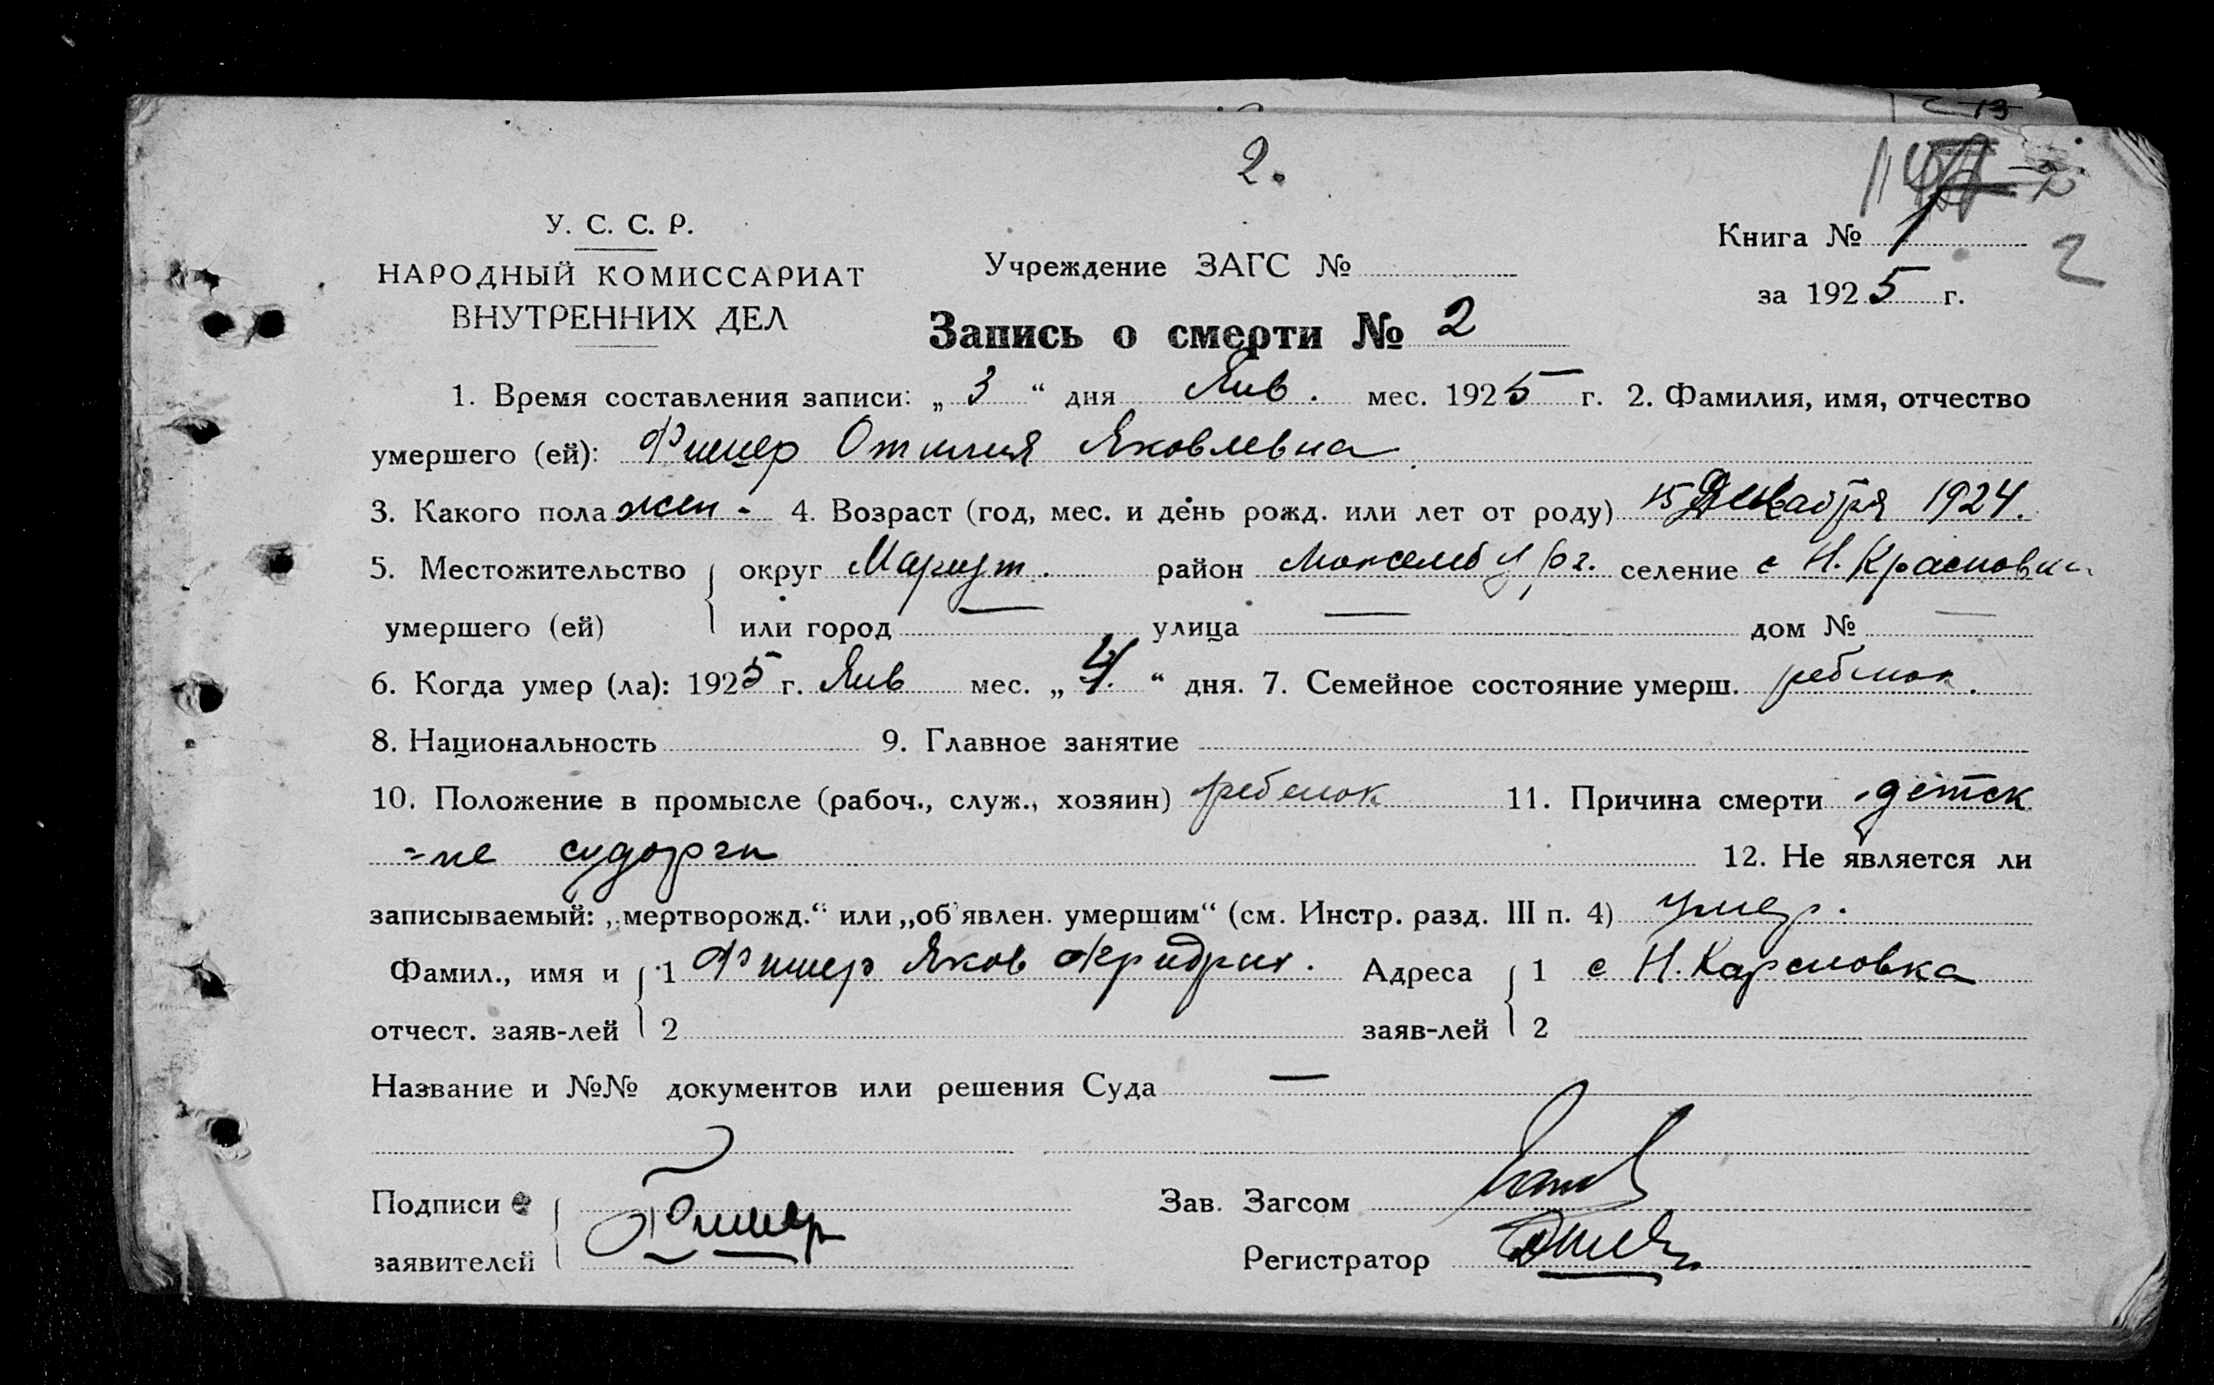 2.
2
У. С. С. Р.
НАРОДНЫЙ КОМИССАРИАТ
ВНУТРЕННИХ ДЕЛ
Учреждение ЗАГС №
Книга № 1
2
за 1925 г.
Запись о смерти № 2
1. Время составления записи: „ 3 “ дня Янв. мес. 1925 г. 2. Фамилия, имя, отчество
умершего (ей): Фишер Отилия Яковлевна
3. Какого пола жен. 4. Возраст (год, мес. и день рожд. или лет от роду) 15 Декабря 1924.
5. Местожительство округ Мариуп. район селение с Н. Красновка
умершего (ей) или город — улица — дом № —
6. Когда умер (ла): 1925 г. Янв мес. „ 4. “ дня. 7. Семейное состояние умерш. ребенок.
8. Национальность 9. Главное занятие
10. Положение в промысле (рабоч., служ., хозяин) ребенок 11. Причина смерти детск
=ие судорги 12. Не является ли
записываемый: „мертворожд.“ или „об'явлен. умершим“ (см. Инстр. разд. III п. 4) умер.
Фамил., имя и 1 Фишер Яков Фридрих. Адреса 1 с Н. Карсловка
отчест. заяв-лей 2 заяв-лей 2
Название и №№ документов или решения Суда —
Подписи Зав. Загсом
Фишер
заявителей Регистратор